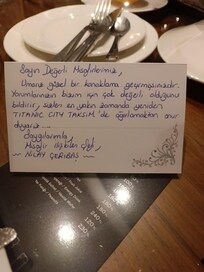 Sayın Değerli Misafirlerimiz,
Umarız güzel bir konaklama geçirmişsinizdir.
Yorumlarınızın bizim için çok değerli olduğunu
bildirir, sizleri en yakın zamanda yeniden
TITANIC CITY TAKSİM 'de ağırlamaktan onur
duyarız.
Saygılarımla,
Misafir İlişkileri
NİLAY ÇERİBAŞ